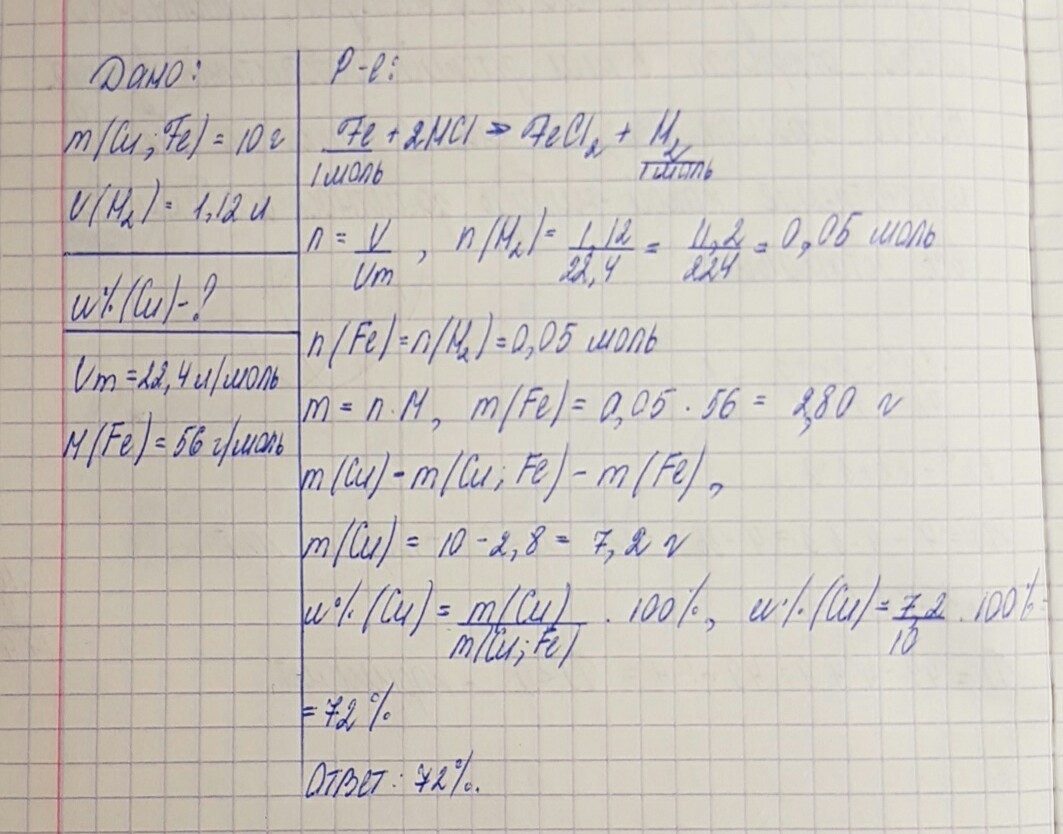 Дано:
m(Cu; Fe) = 10 г
V(H₂) = 1,12 л
w%(Cu)-?
Vm = 22,4 л/моль
M(Fe) = 56 г/моль
Р-е:
Fe + 2HCl → FeCl₂ + H₂
1 моль 1 моль
n = V/Vm, n(H₂) = 1,12/22,4 = 11,2/224 = 0,05 моль
n(Fe) = n(H₂) = 0,05 моль
m = n · M, m(Fe) = 0,05 · 56 = 2,80 г
m(Cu) - m(Cu; Fe) - m(Fe),
m(Cu) = 10 - 2,8 = 7,2 г
w%(Cu) = m(Cu)/m(Cu; Fe) · 100%, w%(Cu) = 7,2/10 · 100% =
= 72 %
Ответ: 72%.